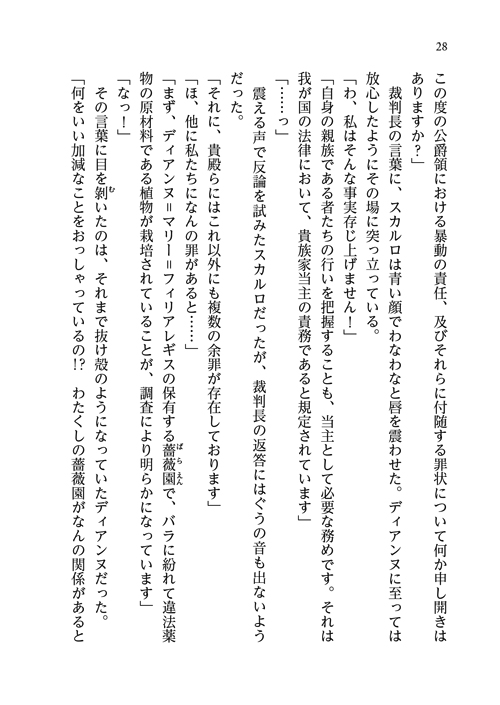 28
この度の公爵領における暴動の責任、及びそれらに付随する罪状について何か申し開きは
ありますか？」
　裁判長の言葉に、スカルロは青い顔でわなわなと唇を震わせた。ディアンヌに至っては
放心したようにその場に突っ立っている。
「わ、私はそんな事実存じ上げません！」
「自身の親族である者たちの行いを把握することも、当主として必要な務めです。それは
我が国の法律において、貴族家当主の責務であると規定されています」
「……っ」
　震える声で反論を試みたスカルロだったが、裁判長の返答にはぐうの音も出ないよう
だった。
「それに、貴殿らにはこれ以外にも複数の余罪が存在しております」
「ほ、他に私たちになんの罪があると……」
「まず、ディアンヌ＝マリー＝フィリアレギスの保有する薔薇園（ばらえん）で、バラに紛れて違法薬
物の原材料である植物が栽培されていることが、調査により明らかになっています」
「なっ！」
　その言葉に目を剝（む）いたのは、それまで抜け殻のようになっていたディアンヌだった。
「何をいい加減なことをおっしゃっているの!?　わたくしの薔薇園がなんの関係があると